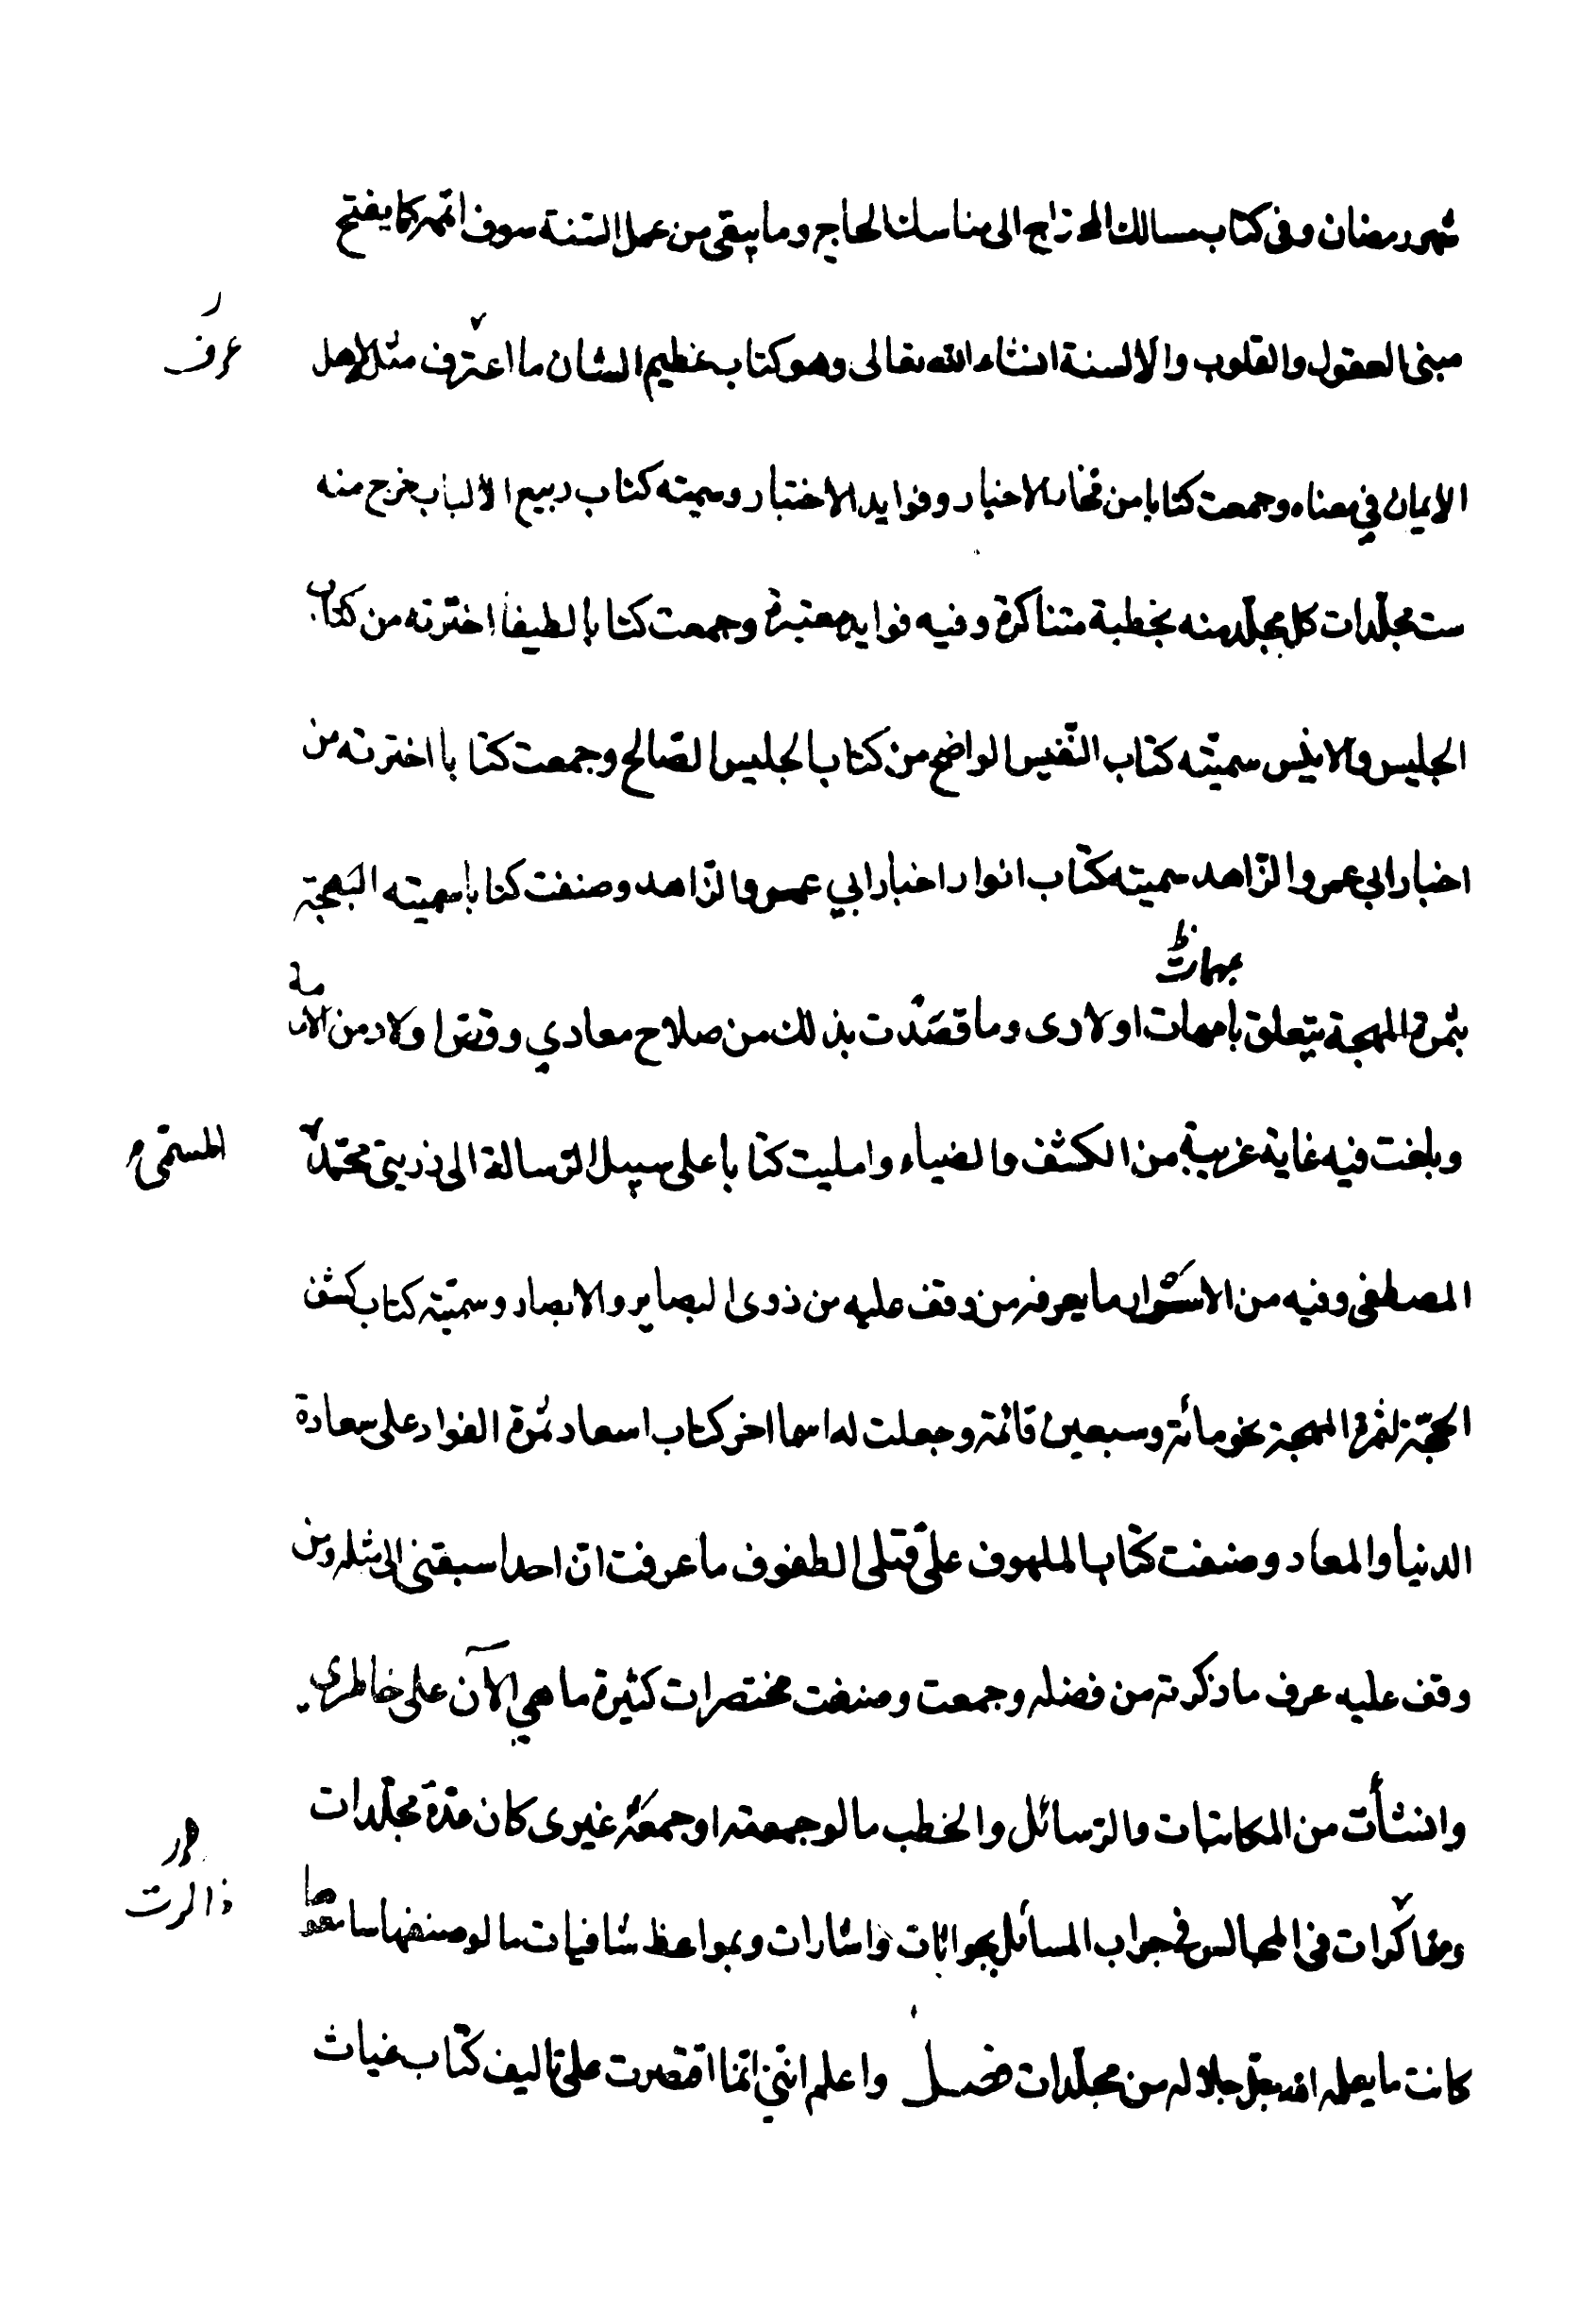 شهر رمضان وفى كتاب مسالك المحتاج الى مناسك الحاج وما يبقى من عمل السّنة سوف اتمّه كما يفتح
مبنى العقول والقلوب والالسنة انشاء الله تعالى وهو كتاب عظيم الشان ما اعترف مثله لاهل
عرف
الايمان في معناه وجمعت كتابا من الاخبار وفوايد الاختبار وسميته كتاب ربيع الألباب خرج منه
ست مجلّدات كل مجلّد منه بخطبة متناكرة وفيه فوايد معتبرة وجمعت كتابا لطيفا اخترته من كتاب
الجليس والانيس سميّته كتاب النّفيس الواضح من كتاب الجليس الصّالح وجمعت كتابا اخترته من
اخبار ابى عمرو الزّاهد سميته كتاب انوار اخبار ابي عمرو الزّاهد وصنفت كتابا سميته البَهجة
بثمرة المهجة يتعلق بامهات اولادى وما قصَدت بذلك من صلاح معادي و اولاد من
وبلغت فيه غاية غريبة من الكشف والضياء وامليت كتابا على سبيل الرّسالة الى ذريتى محمّد
المسمى م
المصطفى وفيه من الاسرار ما يعرفه من وقف عليه من ذوى البصاير والابصار وسميّته كتاب كشف
المحجّة لثمرة المهجة نحو مائة وسبعين قائمة وجعلت له اسما اخر كتاب اسعاد ثمرة الفواد على سعادة
الدنيا والمعاد وصنفت كتاب الملهوف على قتلى الطفوف ما عرفت انّ احدا سبقنى الى مثله ومن
وقف عليه عرف ما ذكرته من فضله وجمعت وصنفت مختصرات كثيرة ما هي الآن على خاطرى
وانشأت من المكاتبات والرّسائل والخطب ما لو جمعته او جمعَه غيرى كان عدّة مجلّدات
ومذاكرات فى المجالس في جواب المسائل بجوابات واشارات وبمواعظ شافيات ما لو صنفها سامعوها
ذاكرت
كانت ما يعلمه الله جلّ جلاله من مجلّدات فصل واعلم انّني انّما اقتصرت على تاليف كتاب غياث